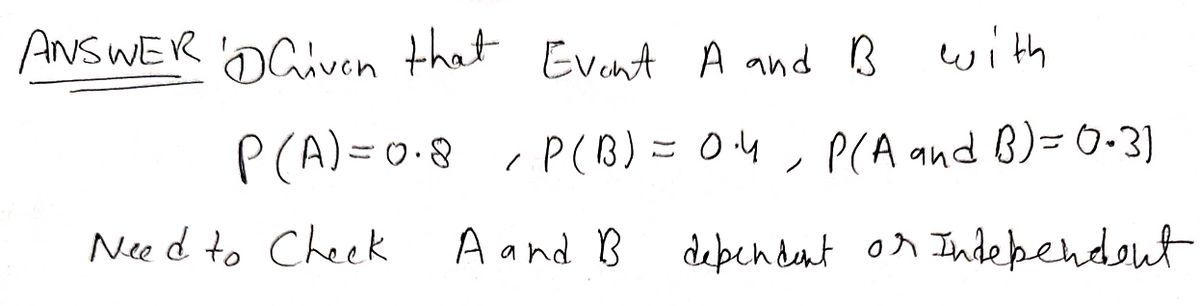 ANSWER ① Given that Event A and B with
P(A)=0.8 , P(B) = 0.4 , P(A and B)=0.31
Need to Check A and B dependent or Independent